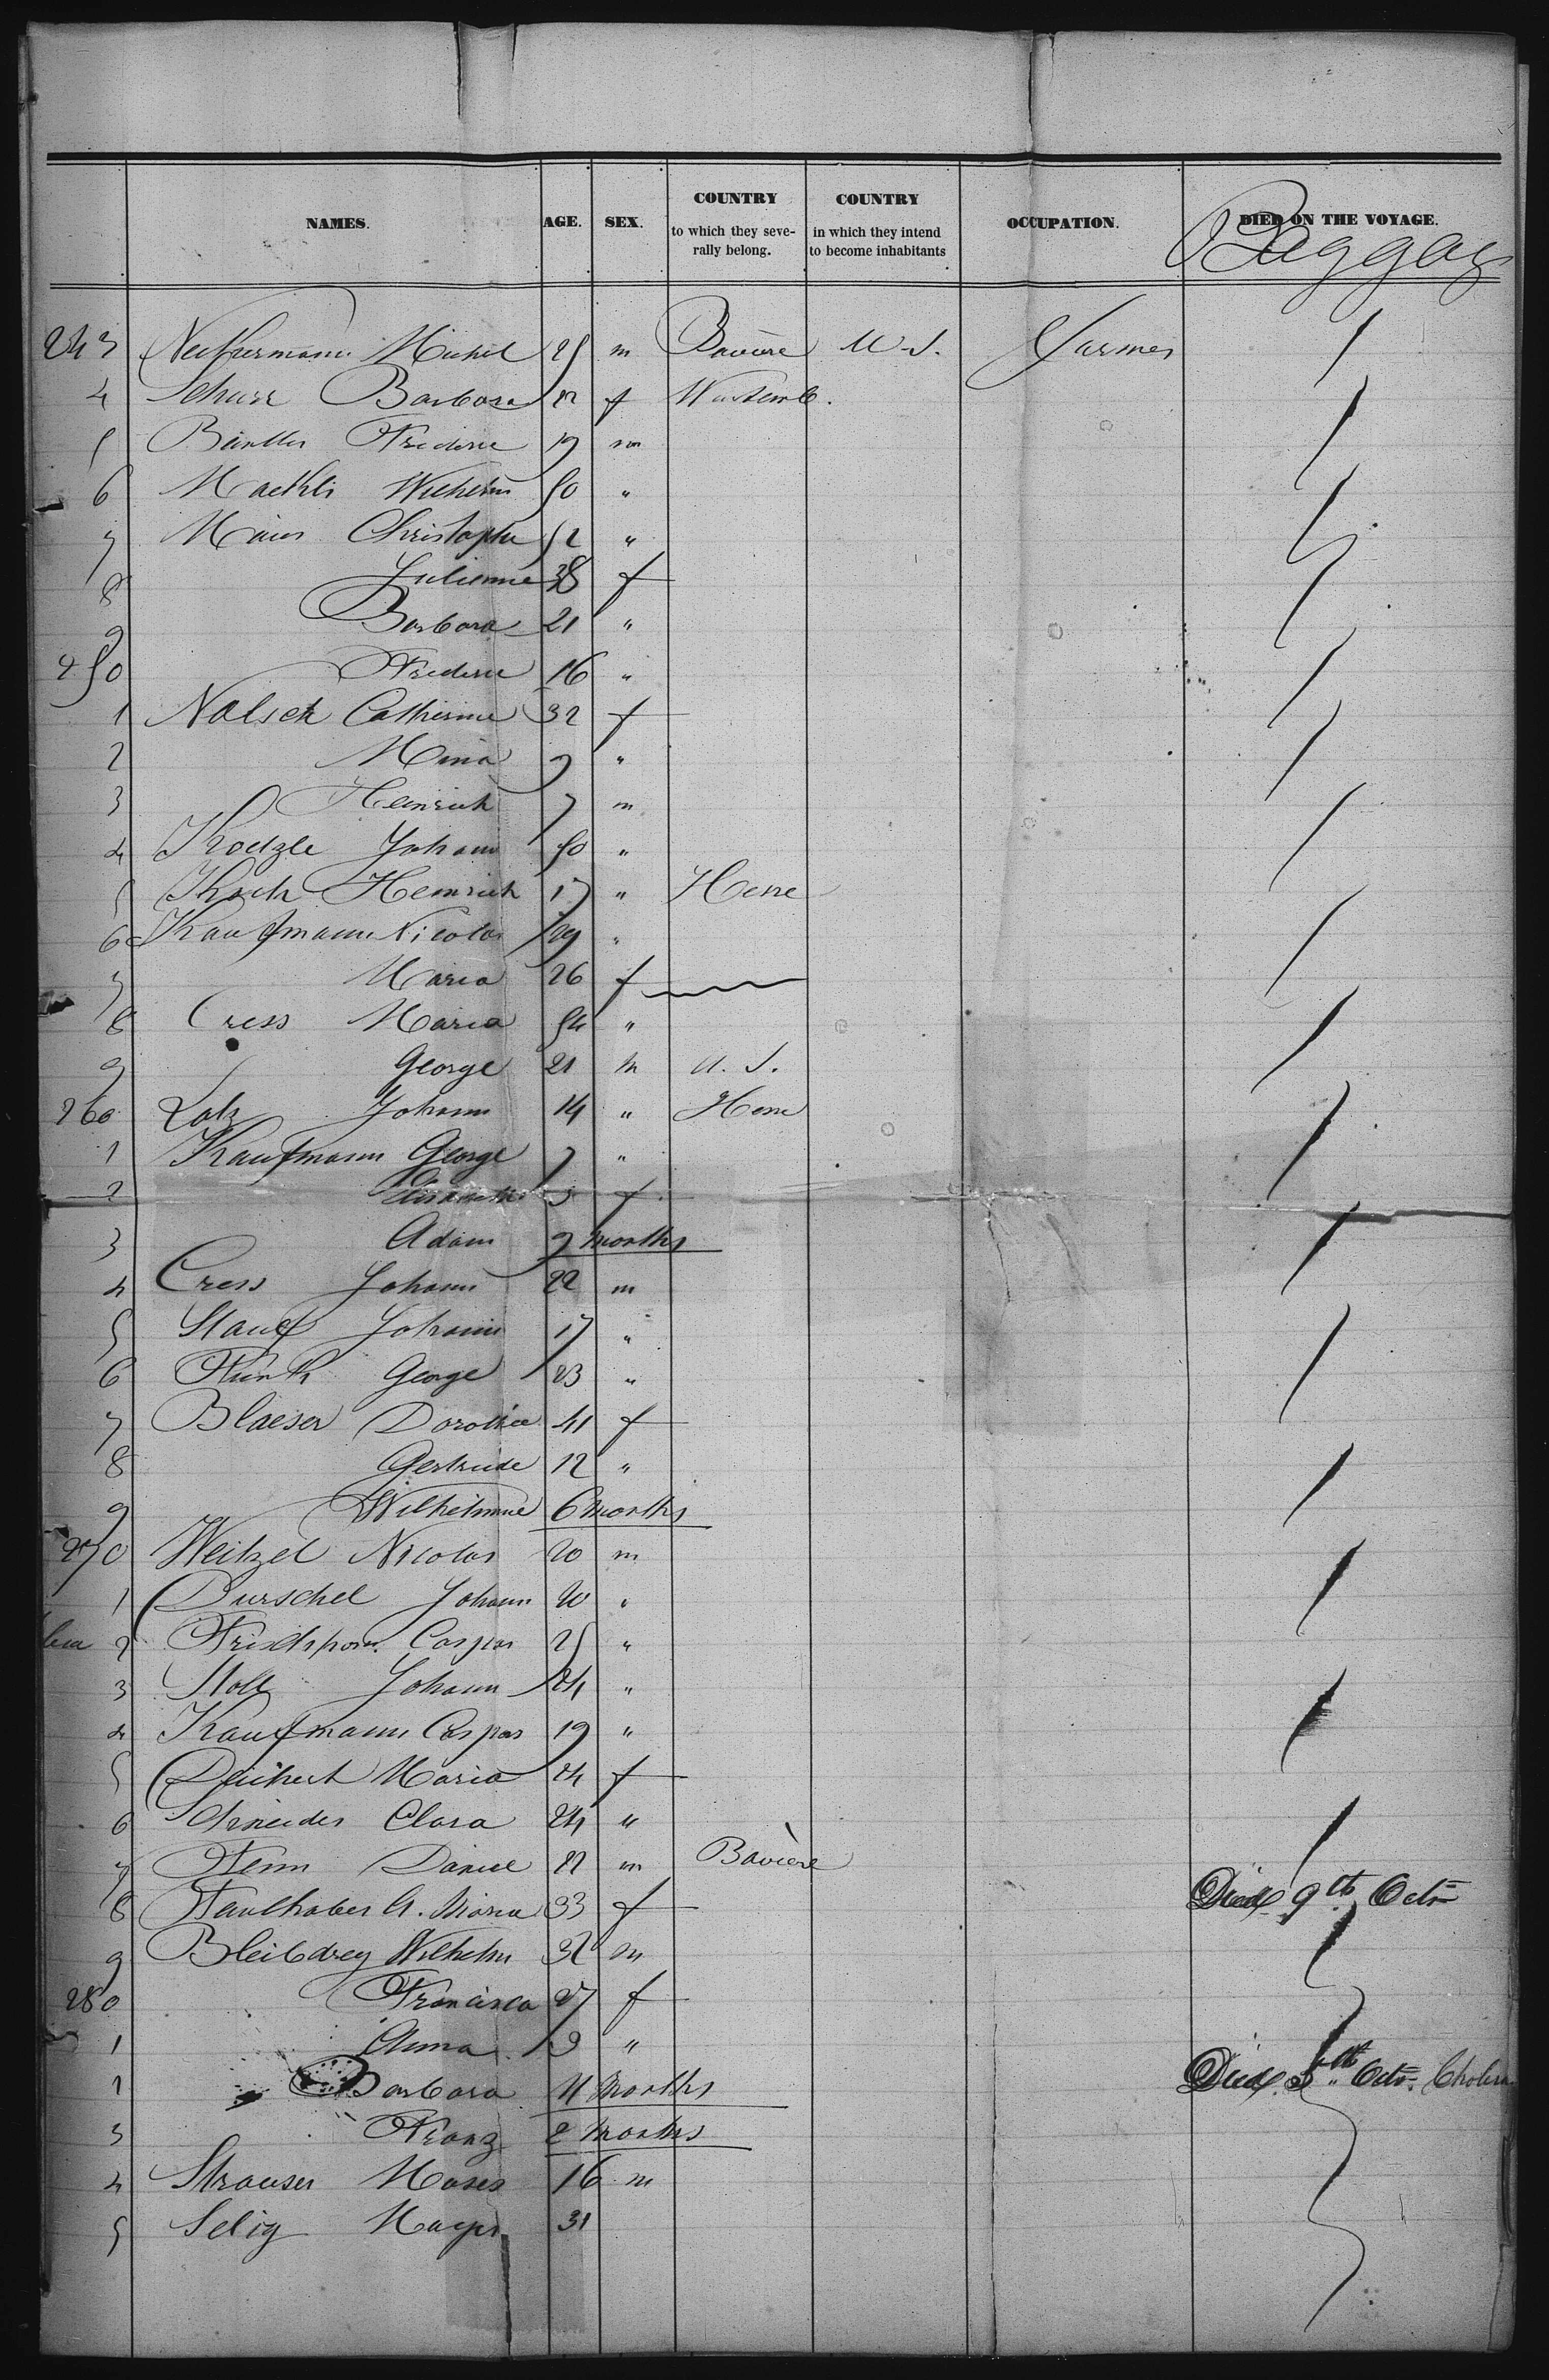 NAMES. AGE. SEX. COUNTRY to which they severally belong. COUNTRY in which they intend to become inhabitants OCCUPATION. DIED ON THE VOYAGE.
Baggag
243 Neckermann Michel 25 m Bavière U.S. Farmer
4 Schurr Barbara 22 f Wurtemb.
5 Frederic 19 m
6 Wilhelm 50 "
7 Christophe 52 "
8 Julienne 38 f
9 Barbara 21 "
250 Frederic 16 "
1 Nolsch Catherine 32 f
2 Mina 9 "
3 Heinrich 7 m
4 Kroetzle Johann 50 "
5 Koch Heinrich 17 " Hesse
6 Kaufmann Nicolas 29 "
7 Maria 26 f
8 Cress Maria 54 "
9 George 21 m U.S.
260 Lotz Johann 14 " Hesse
1 Kaufmann George 7 "
2 Elisabetha 3 f
3 Adam 9 months
4 Cress Johann 22 m
5 Stauf Johann 17 "
6 Fürth George 23 "
7 Blaeser Dorothée 41 f
8 Gertrude 12 "
9 Wilhelmine 6 months
270 Weitzel Nicolas 20 m
1 Durschel Johann 20 "
2 Caspar 25 "
3 Stoll Johann 24 "
4 Kaufmann Caspar 19 "
5 Deichert Maria 24 f
6 Schneider Clara 24 "
7 Fenn Daniel 22 m Bavière
8 Faulhaber A. Maria 33 f Died 9th Octr
9 Bleibdrey Wilhelm 32 m
280 Francisca 27 f
1 Anna 3 "
1 Barbara 11 months Died 5th Octr. Cholera
3 Franz 2 months
4 Strauser Moses 16 m
5 Selig Mayer 31